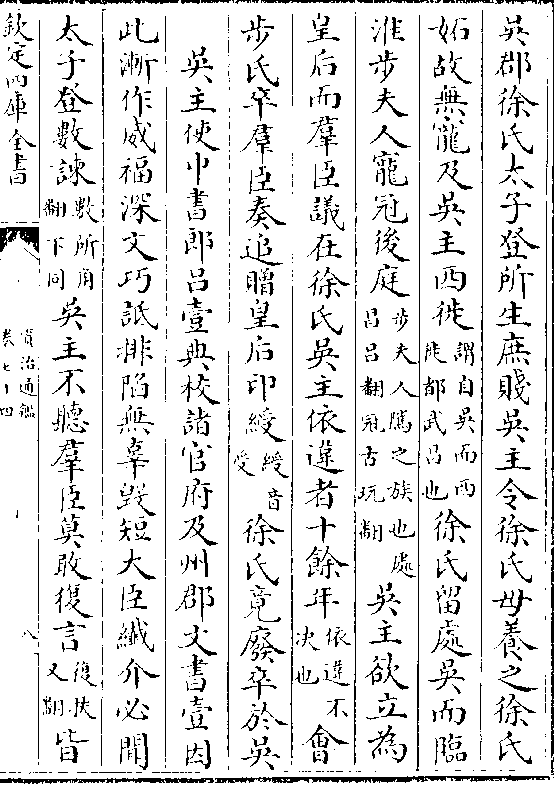 吳郡徐氏太子登所生庶賤吳主令徐氏母養之徐氏
妬故無寵及吳主西徙謂自吳而西徙都武昌也徐氏留處吳而臨
淮步夫人寵冠後庭步夫人隲之族也處昌呂翻冠古玩翻吳主欲立為
皇后而羣臣議在徐氏吳主依違者十餘年依違不决也會
步氏卒羣臣奏追贈皇后印綬綬音受徐氏竟廢卒於吳
吳主使中書郎呂壹典校諸官府及州郡文書壹因
此漸作威福深文巧詆排陷無辜毀短大臣纖介必聞
太子登數諫數所角翻下同吳主不聽羣臣莫敢復言復扶又翻皆
欽定四庫全書
資治通鑑
卷七十四
八